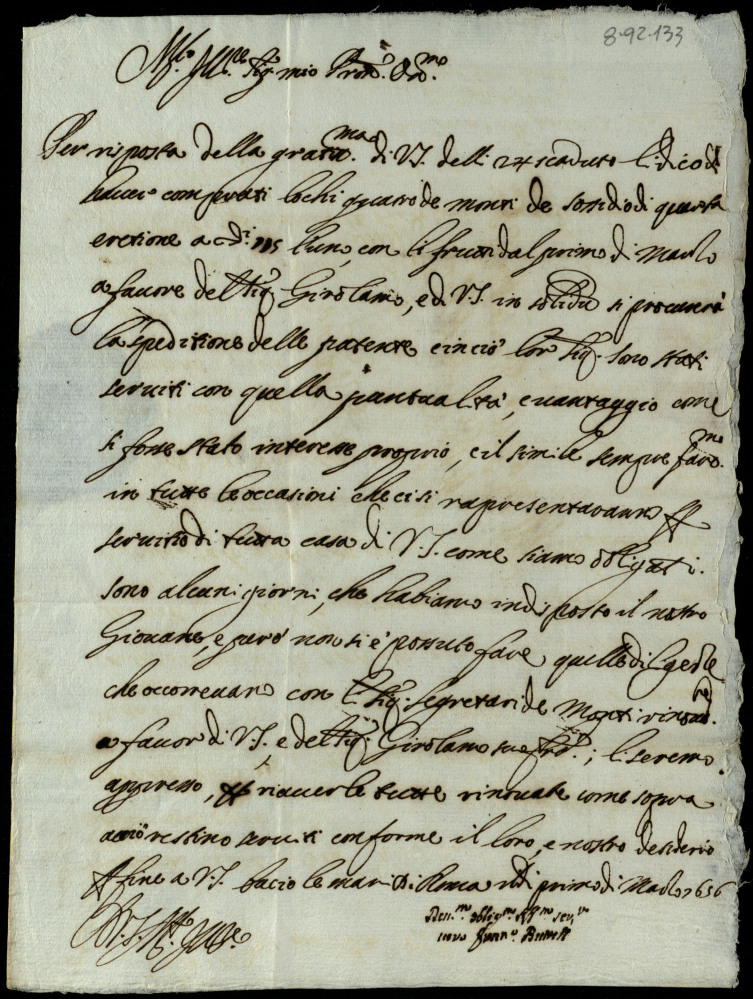 8-92-133
M.to Ill.re Sig.r mio Pron. Oss.mo
Per risposta della gratis.ma di V.S. delli 24 scaduto li dico di
haver comprati lochi quatro de monti de sossidio di quarta
eretione a Δdi 115 l'uno, con li frutti dal primo di Marzo
a favore del Sig.r Girolamo, ed V.S. in solidu si procurerà
la speditione delle patente e in ciò lor Sig.ri sono stati
serviti con quella puntualità, e vantaggio come
si fosse stato interesse proprio, e il simile sempre faro.mo
in tutte le occasioni che ci si rapresentarano per
servitio di tutta casa di V.S. come siamo obligati.
sono alcuni giorni, che habiamo indisposto il nostro
Giovane, e però non si è possuto fare quelle di
che occorrevano con li Sig.ri Segretari de Monti
a favor di V.S. e del Sig.r Girolamo suo ; li seremo
appresso, per riaverle tutte rinovate come sopra
acciò restino serviti conforme il loro, e nostro desiderio
per fine a V.S. bacio le mani Di Roma il dì primo di Marzo 1656
Di V.S. M.to Ill.re